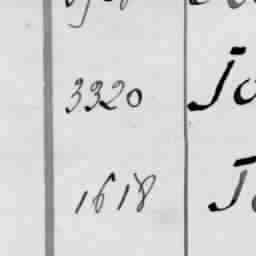 3320 Jo
1618 Jo